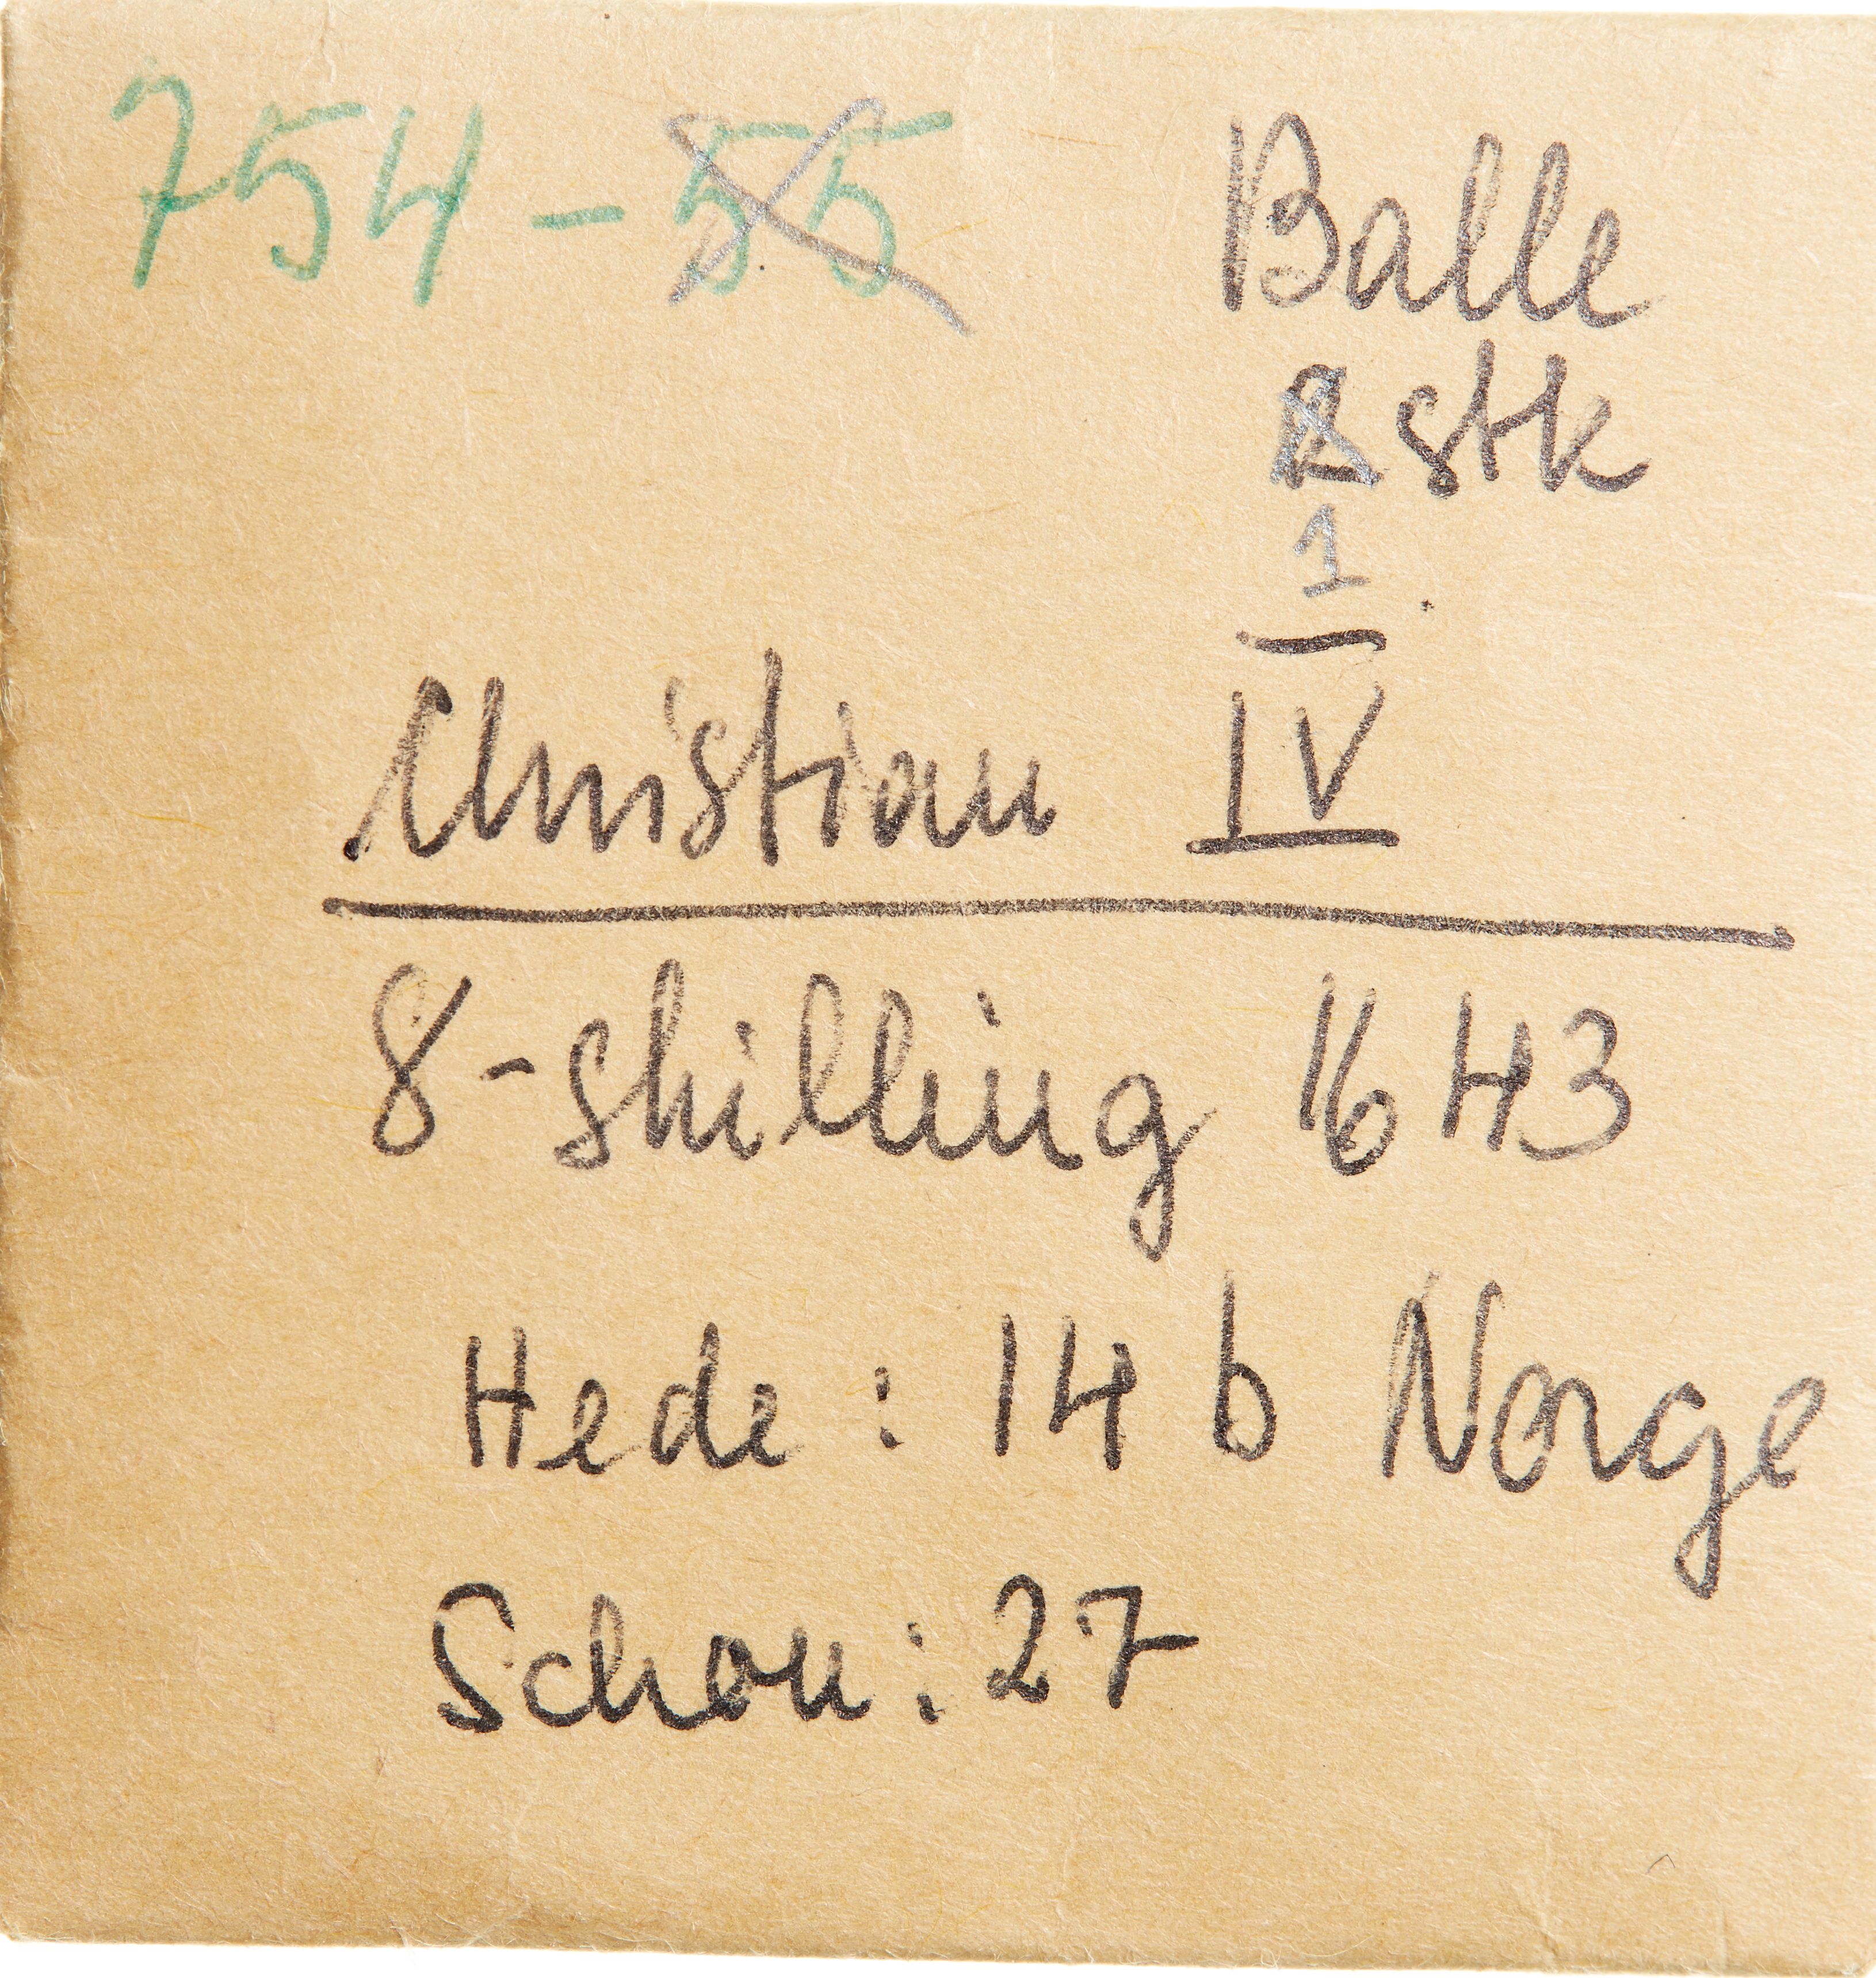 754-55
Balle
2 stk
1
Christian IV
8-skilling 1643
Hede: 14 b Norge
Schou: 27